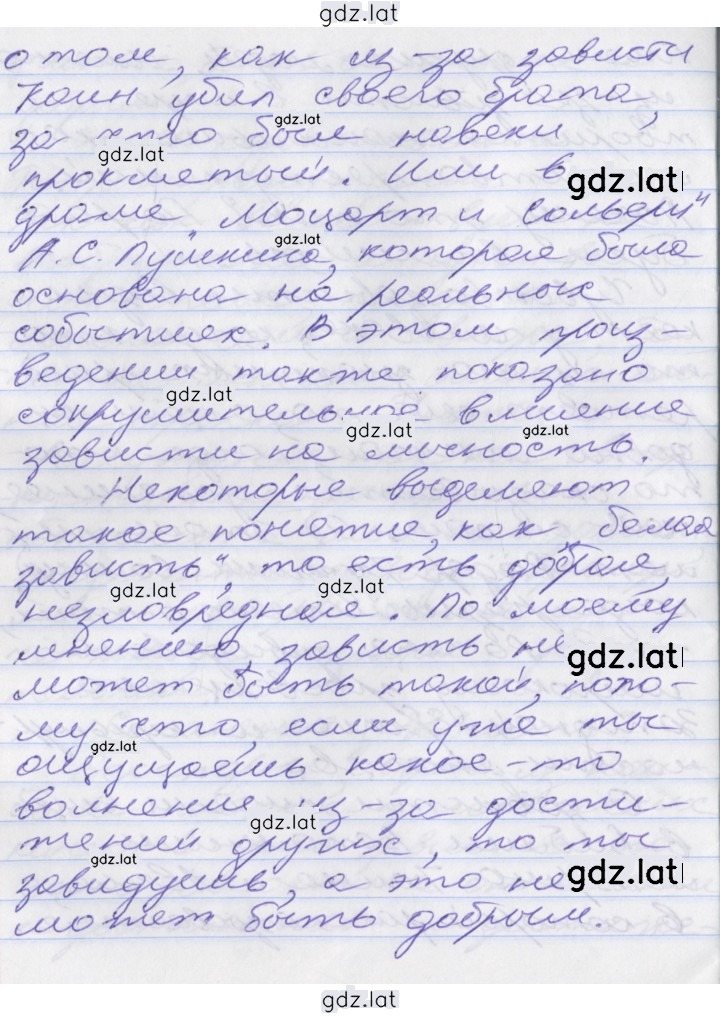 gdz.lat
о том, как из-за зависти
Каин убил своего брата,
за что был навеки
gdz.lat
gdz.lat
проклятый. Или в
gdz.lat
драме „Моцарт и Сольери"
gdz.lat
А.С. Пушкина, которая была
основана на реальных
событиях. В этом произ-
ведении также показано
gdz.lat
сокрушительное влияние
gdz.lat
gdz.lat
зависти на личность.
Некоторые выделяют
такое понятие, как „белая
зависть", то есть добрая,
gdz.lat
gdz.lat
незловредная. По моему
мнению, зависть не
gdz.lat
может быть такой, пото-
му что, если уже ты
gdz.lat
ощущаешь какое-то
волнение из-за дости-
gdz.lat
жений других, то ты
gdz.lat
завидуешь, а это не
gdz.lat
может быть добрым.
gdz.lat